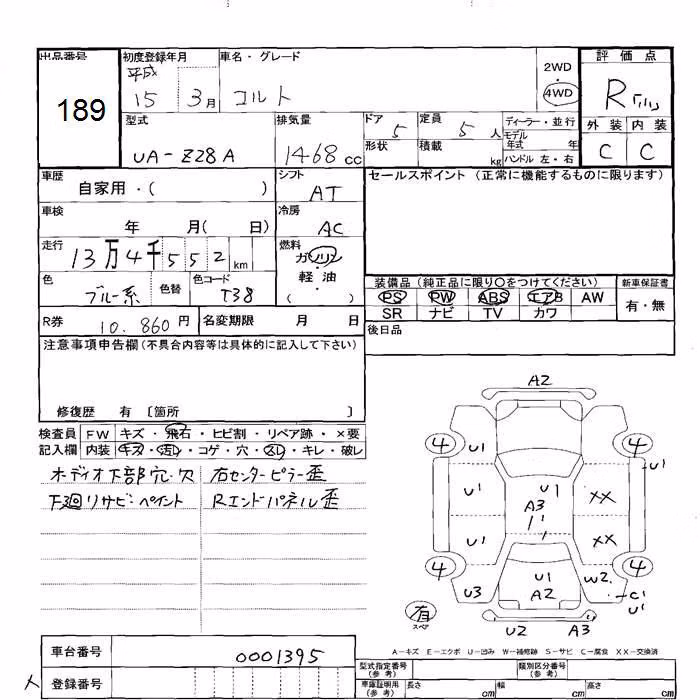 出品番号 189
初度登録年月 平成 15 3月
車名・グレード コルト
2WD
4WD
評価点 R
外装 内装
C C
型式 UA-Z28A
排気量 1468 cc
ドア 5
形状
定員 5 人
積載 kg
ディーラー・並行
モデル年式 年
ハンドル 左・右
車歴 自家用・( )
シフト AT
セールスポイント (正常に機能するものに限ります)
車検 年 月( 日)
冷房 AC
走行 13万4千552km
燃料 ガソリン
軽・油
( )
色 ブルー系 色替 色コード T38
装備品 (純正品に限り○をつけてください) 新車保証書
PS PW ABS エアB AW 有・無
SR ナビ TV カワ
R券 10.860円 名変期限 月 日
後日品
注意事項申告欄(不具合内容等は具体的に記入して下さい)
修復歴 有 〔箇所 〕
検査員 FW キズ・飛石・ヒビ割・リペア跡・×要
記入欄 内装 キズ・汚レ・コゲ・穴・欠レ・キレ・破レ
オーディオ下部穴.欠 右センターピラー歪
下廻リサビ・ペイント Rエンドパネル歪
A2
4 U1 4 U1
U1 U1 XX
A3
U1 XX
4 4
U3 U1 A2 W2 C1 U1
有 スペア
U2 A3
A-キズ E-エクボ U-凹み W-補修跡 S-サビ C-腐食 XX-交換済
車台番号 0001395
登録番号
型式指定番号 (参考) 類別区分番号 (参考)
車庫証明用 (参考) 長さ cm 幅 cm 高さ cm